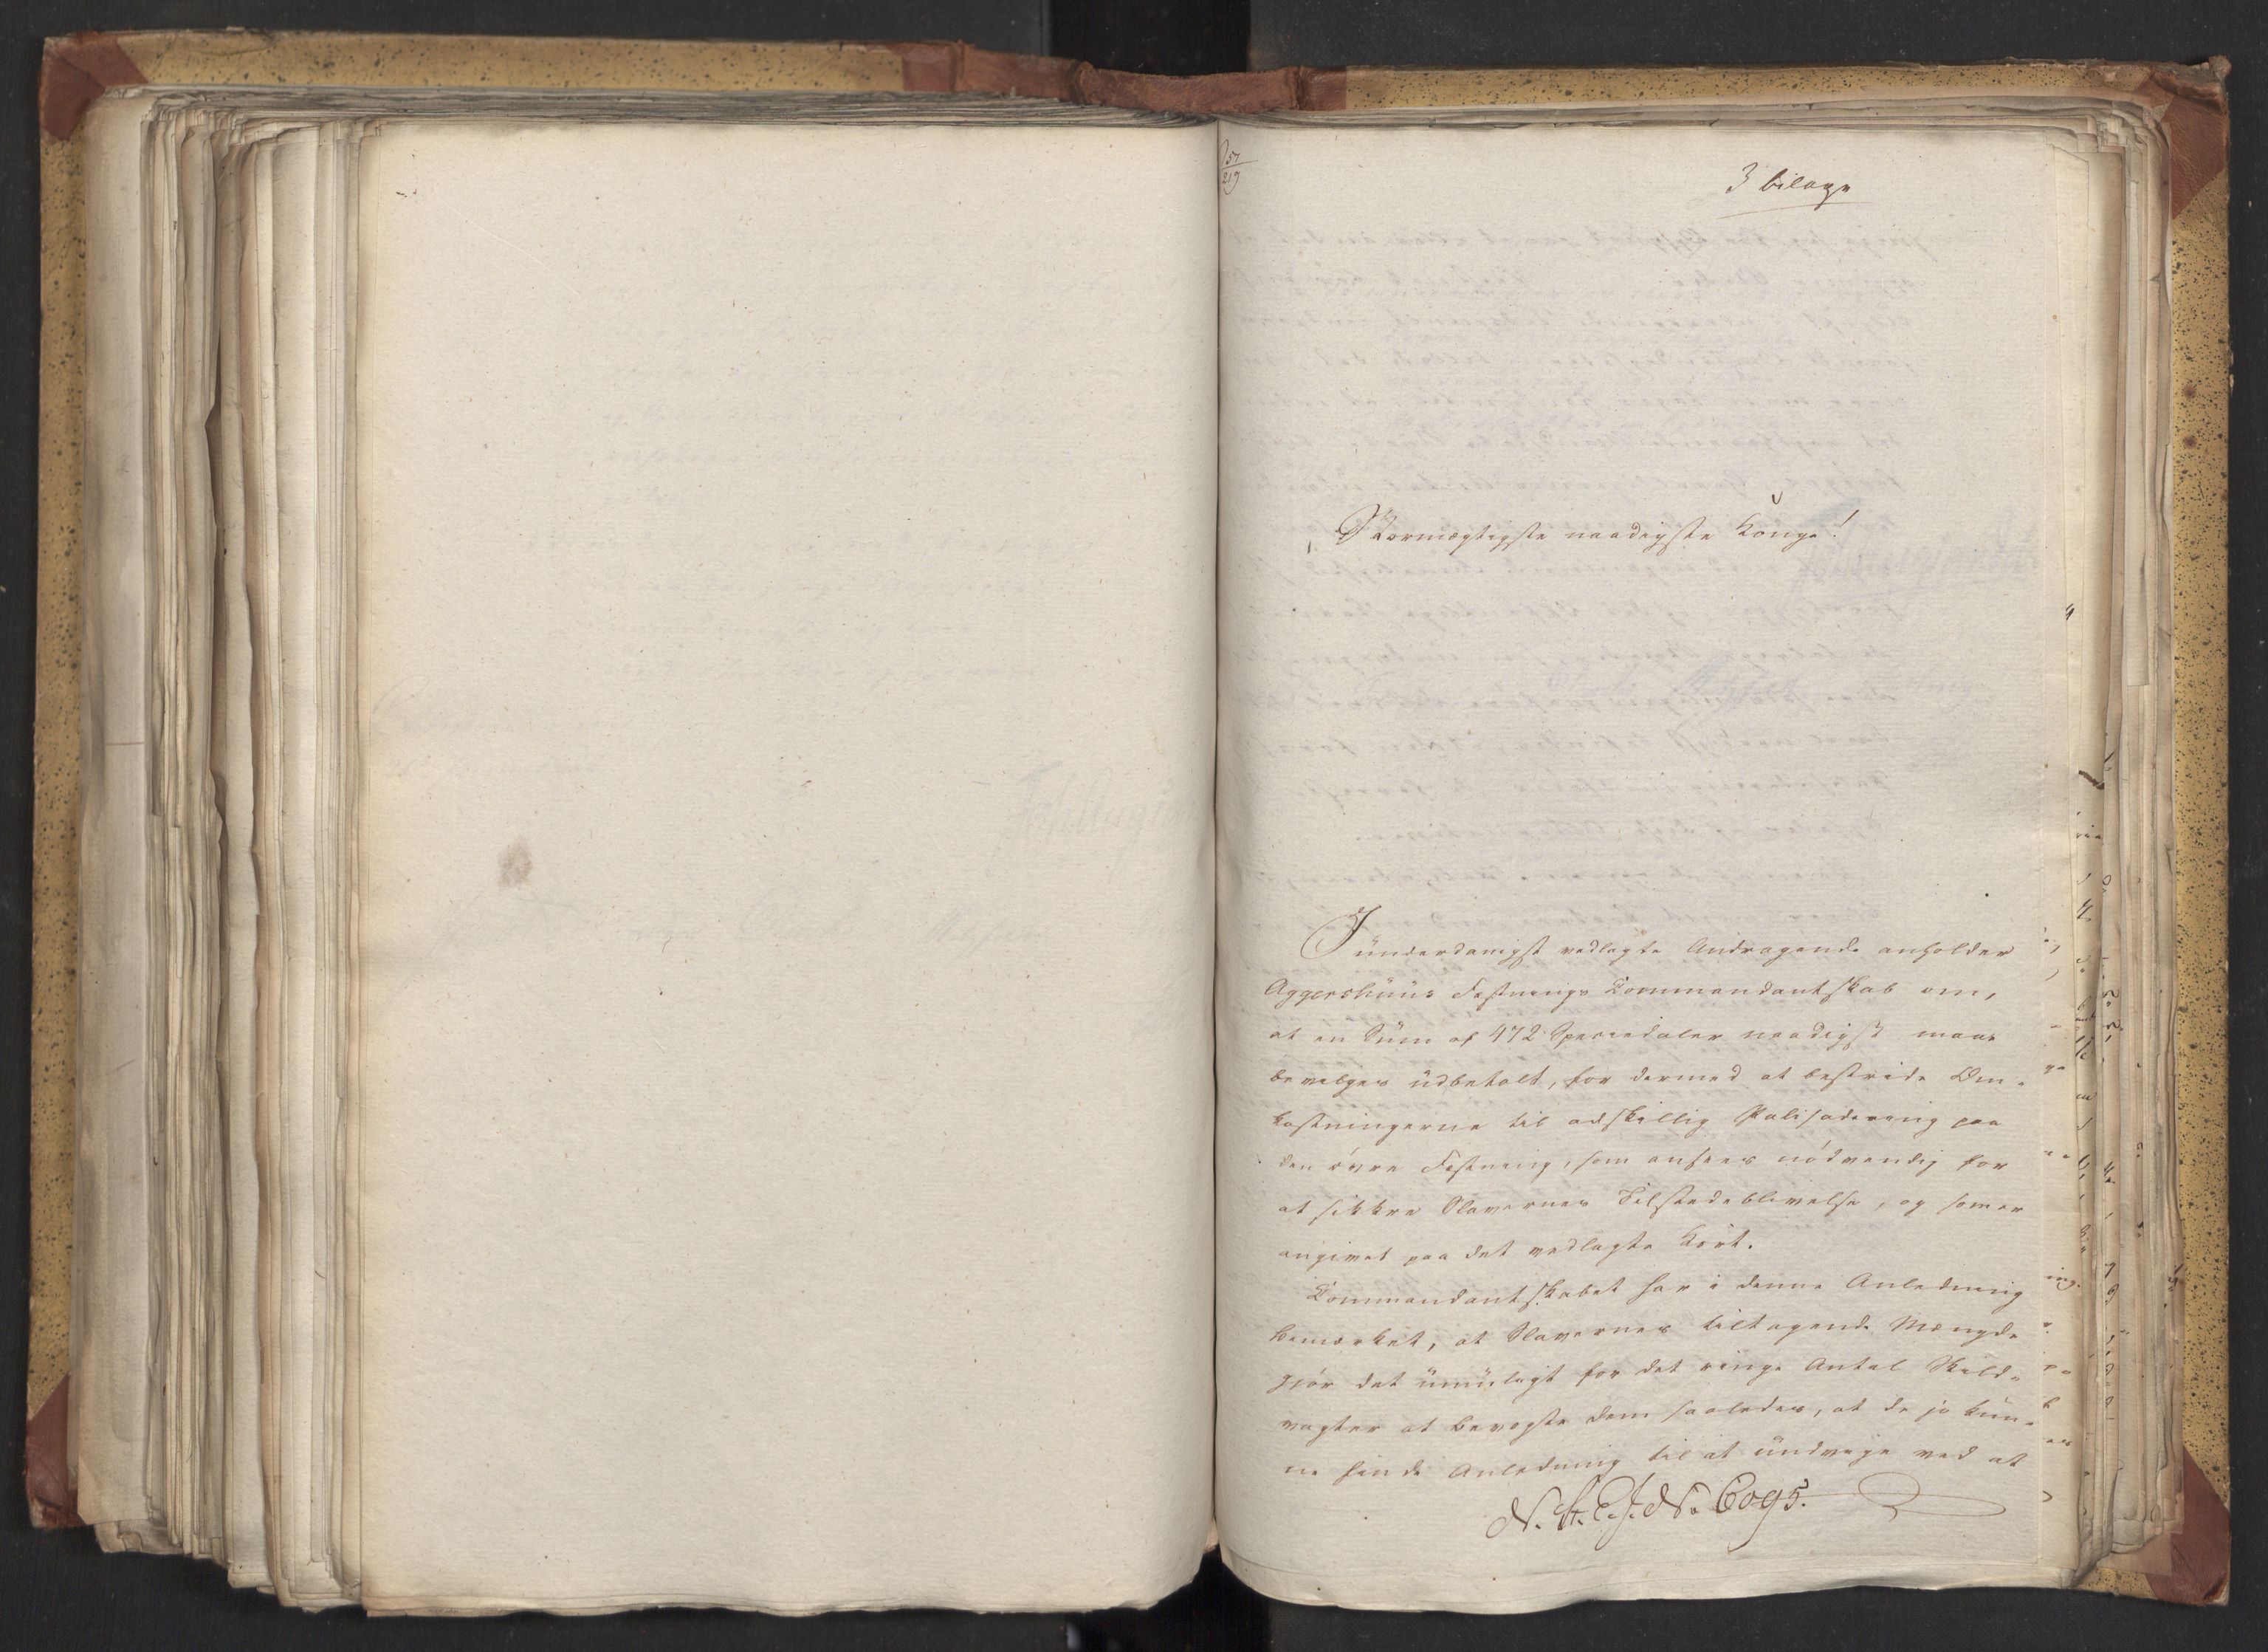 57
219
3 bilage
Stormægtigste naadigste Konge!
I underdanigst vedlagte Andragende anholder
Aggershuus Festnings Commandantskab om,
at en Sum af 472 Speciedaler naadigst maae
bevilges udbetalt, for dermed at bestride Om-
kostningerne til adskillig Palisadering paa
den øvre Festning, som ansees nødvendig for
at sikkre Slavernes Tilstedeblivelse, og som er
angivet paa det vedlagte Kort.
Commandantskabet har i denne Anledning
bemærket, at Slavernes tiltagende Mængde
gjør det umuligt for det ringe Antal Skild-
vagter at bevogte dem saaledes, at de jo kun-
ne finde Anledning til at undvige ved at
N. St. E. J. No. 6095.